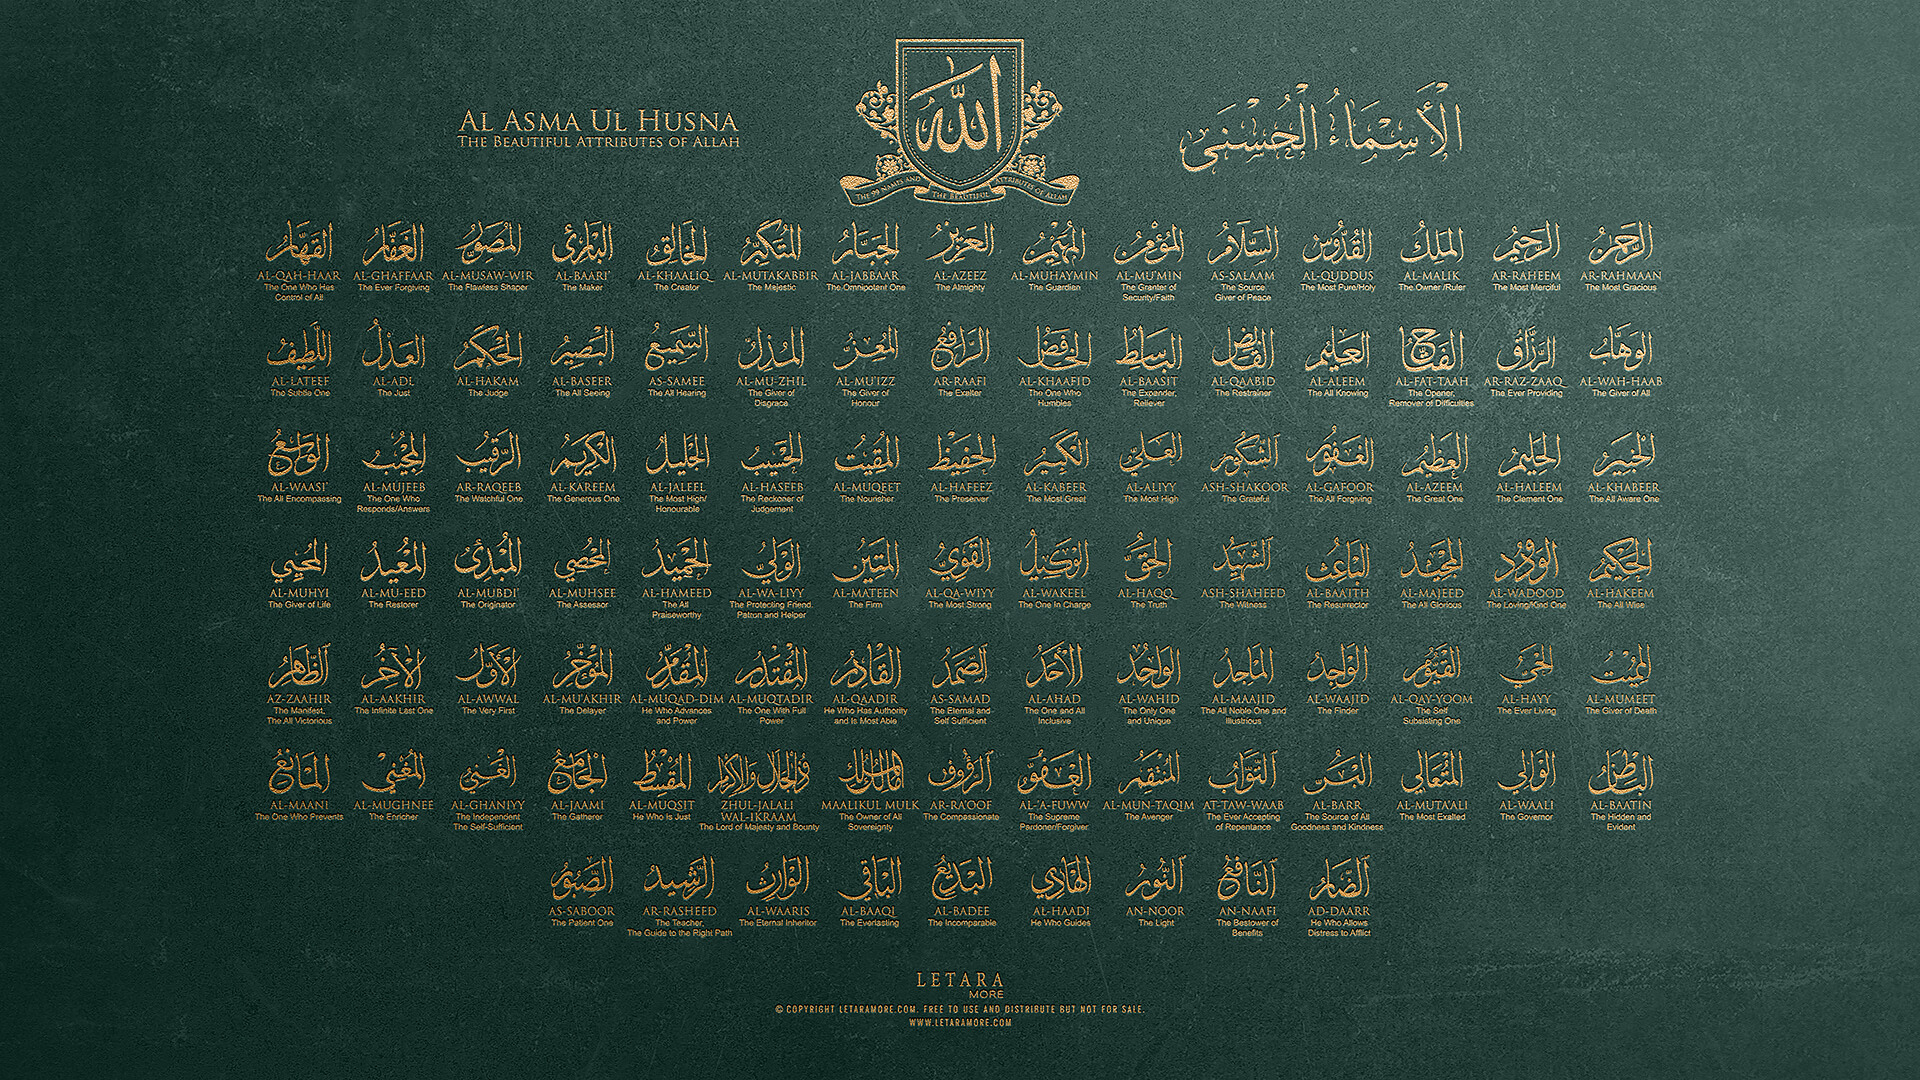 AL ASMA UL HUSNA
THE BEAUTIFUL ATTRIBUTES OF ALLAH
الله
THE 99 NAMES AND THE BEAUTIFUL ATTRIBUTES OF ALLAH
الْأَسْمَاءُ الْحُسْنَى
الرحمن
AR-RAHMAAN
The Most Gracious
الرحيم
AR-RAHEEM
The Most Merciful
الملك
AL-MALIK
The Owner /Ruler
القدوس
AL-QUDDUS
The Most Pure/Holy
السلام
AS-SALAAM
The Source
Giver of Peace
المؤمن
AL-MU'MIN
The Granter of
Security/Faith
المهيمن
AL-MUHAYMIN
The Guardian
العزيز
AL-AZEEZ
The Almighty
الجبار
AL-JABBAAR
The Omnipotent One
المتكبر
AL-MUTAKABBIR
The Majestic
الخالق
AL-KHAALIQ
The Creator
البارئ
AL-BAARI'
The Maker
المصور
AL-MUSAW-WIR
The Flawless Shaper
الغفار
AL-GHAFFAAR
The Ever Forgiving
القهار
AL-QAH-HAAR
The One Who Has
Control of All
الوهاب
AL-WAH-HAAB
The Giver of All
الرزاق
AR-RAZ-ZAAQ
The Ever Providing
الفتاح
AL-FAT-TAAH
The Opener,
Remover of Difficulties
العليم
AL-ALEEM
The All Knowing
القابض
AL-QAABID
The Restrainer
الباسط
AL-BAASIT
The Expander,
Reliever
الخافض
AL-KHAAFID
The One Who
Humbles
الرافع
AR-RAAFI
The Exalter
المعز
AL-MU'IZZ
The Giver of
Honour
المذل
AL-MU-ZHIL
The Giver of
Disgrace
السميع
AS-SAMEE
The All Hearing
البصير
AL-BASEER
The All Seeing
الحكم
AL-HAKAM
The Judge
العدل
AL-ADL
The Just
اللطيف
AL-LATEEF
The Subtle One
الخبير
AL-KHABEER
The All Aware One
الحليم
AL-HALEEM
The Clement One
العظيم
AL-AZEEM
The Great One
الغفور
AL-GAFOOR
The All Forgiving
الشكور
ASH-SHAKOOR
The Grateful
العلي
AL-ALIYY
The Most High
الكبير
AL-KABEER
The Most Great
الحفيظ
AL-HAFEEZ
The Preserver
المقيت
AL-MUQEET
The Nourisher
الحسيب
AL-HASEEB
The Reckoner of
Judgement
الجليل
AL-JALEEL
The Most High/
Honourable
الكريم
AL-KAREEM
The Generous One
الرقيب
AR-RAQEEB
The Watchful One
المجيب
AL-MUJEEB
The One Who
Responds/Answers
الواسع
AL-WAASI'
The All Encompassing
الحكيم
AL-HAKEEM
The All Wise
الودود
AL-WADOOD
The Loving/Kind One
المجيد
AL-MAJEED
The All Glorious
الباعث
AL-BAA'ITH
The Resurrector
الشهيد
ASH-SHAHEED
The Witness
الحق
AL-HAQQ
The Truth
الوكيل
AL-WAKEEL
The One In Charge
القوي
AL-QA-WIYY
The Most Strong
المتين
AL-MATEEN
The Firm
الولي
AL-WA-LIYY
The Protecting Friend,
Patron and Helper
الحميد
AL-HAMEED
The All
Praiseworthy
المحصي
AL-MUHSEE
The Assessor
المبدئ
AL-MUBDI'
The Originator
المعيد
AL-MU-EED
The Restorer
المحيي
AL-MUHYI
The Giver of Life
المميت
AL-MUMEET
The Giver of Death
الحي
AL-HAYY
The Ever Living
القيوم
AL-QAY-YOOM
The Self
Subsisting One
الواجد
AL-WAAJID
The Finder
الماجد
AL-MAAJID
The All Noble One and
Illustrious
الواحد
AL-WAHID
The Only One
and Unique
الأحد
AL-AHAD
The One and All
Inclusive
الصمد
AS-SAMAD
The Eternal and
Self Sufficient
القادر
AL-QAADIR
He Who Has Authority
and Is Most Able
المقتدر
AL-MUQTADIR
The One With Full
Power
المقدم
AL-MUQAD-DIM
He Who Advances
and Power
المؤخر
AL-MU'AKHIR
The Delayer
الأول
AL-AWWAL
The Very First
الآخر
AL-AAKHIR
The Infinite Last One
الظاهر
AZ-ZAAHIR
The Manifest,
The All Victorious
الباطن
AL-BAATIN
The Hidden and
Evident
الوالي
AL-WAALI
The Governor
المتعالي
AL-MUTA'ALI
The Most Exalted
البر
AL-BARR
The Source of All
Goodness and Kindness
التواب
AT-TAW-WAAB
The Ever Accepting
of Repentance
المنتقم
AL-MUN-TAQIM
The Avenger
العفو
AL-'A-FUWW
The Supreme
Pardoner/Forgiver
الرؤوف
AR-RA'OOF
The Compassionate
مالك الملك
MAALIKUL MULK
The Owner of All
Sovereignty
ذو الجلال والإكرام
ZHUL-JALALI
WAL-IKRAAM
The Lord of Majesty and Bounty
المقسط
AL-MUQSIT
He Who Is Just
الجامع
AL-JAAMI
The Gatherer
الغني
AL-GHANIYY
The Independent
The Self-Sufficient
المغني
AL-MUGHNEE
The Enricher
المانع
AL-MAANI
The One Who Prevents
الضار
AD-DAARR
He Who Allows
Distress to Afflict
النافع
AN-NAAFI
The Bestower of
Benefits
النور
AN-NOOR
The Light
الهادي
AL-HAADI
He Who Guides
البديع
AL-BADEE
The Incomparable
الباقي
AL-BAAQI
The Everlasting
الوارث
AL-WAARIS
The Eternal Inheritor
الرشيد
AR-RASHEED
The Teacher,
The Guide to the Right Path
الصبور
AS-SABOOR
The Patient One
LETARA
MORE
© COPYRIGHT LETARAMORE.COM. FREE TO USE AND DISTRIBUTE BUT NOT FOR SALE.
WWW.LETARAMORE.COM